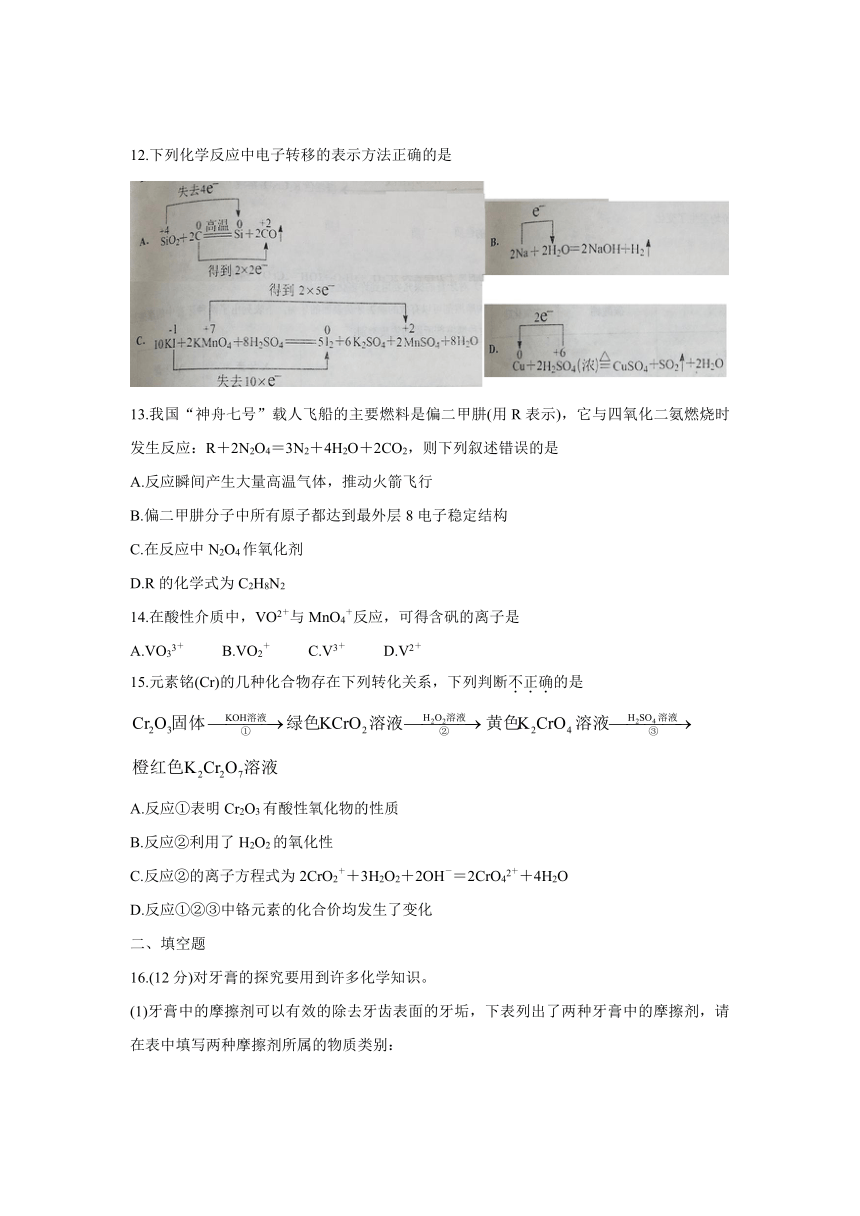 12.下列化学反应中电子转移的表示方法正确的是
失去4e⁻
+4 0 高温 0 +2
A. SiO₂+2C═══Si+2CO↑
得到 2×2e⁻
e⁻
B. 2Na+2H₂O=2NaOH+H₂↑
得到 2×5e⁻
-1 +7 0 +2
C. 10KI+2KMnO₄+8H₂SO₄═══5I₂+6K₂SO₄+2MnSO₄+8H₂O
失去10×e⁻
2e⁻
0 +6 △
D. Cu+2H₂SO₄(浓)═CuSO₄+SO₂↑+2H₂O
13.我国“神舟七号”载人飞船的主要燃料是偏二甲肼(用 R 表示)，它与四氧化二氮燃烧时
发生反应：R＋2N₂O₄＝3N₂＋4H₂O＋2CO₂，则下列叙述错误的是
A.反应瞬间产生大量高温气体，推动火箭飞行
B.偏二甲肼分子中所有原子都达到最外层 8 电子稳定结构
C.在反应中 N₂O₄ 作氧化剂
D.R 的化学式为 C₂H₈N₂
14.在酸性介质中，VO²⁺与 MnO₄⁺反应，可得含矾的离子是
A.VO₃³⁺ B.VO₂⁺ C.V³⁺ D.V²⁺
15.元素铭(Cr)的几种化合物存在下列转化关系，下列判断不正确的是
Cr₂O₃固体 —KOH溶液 ①→ 绿色KCrO₂溶液 —H₂O₂溶液 ②→ 黄色K₂CrO₄溶液 —H₂SO₄溶液 ③→
橙红色K₂Cr₂O₇溶液
A.反应①表明 Cr₂O₃ 有酸性氧化物的性质
B.反应②利用了 H₂O₂ 的氧化性
C.反应②的离子方程式为 2CrO₂⁺＋3H₂O₂＋2OH⁻＝2CrO₄²⁺＋4H₂O
D.反应①②③中铬元素的化合价均发生了变化
二、填空题
16.(12 分)对牙膏的探究要用到许多化学知识。
(1)牙膏中的摩擦剂可以有效的除去牙齿表面的牙垢，下表列出了两种牙膏中的摩擦剂，请
在表中填写两种摩擦剂所属的物质类别：